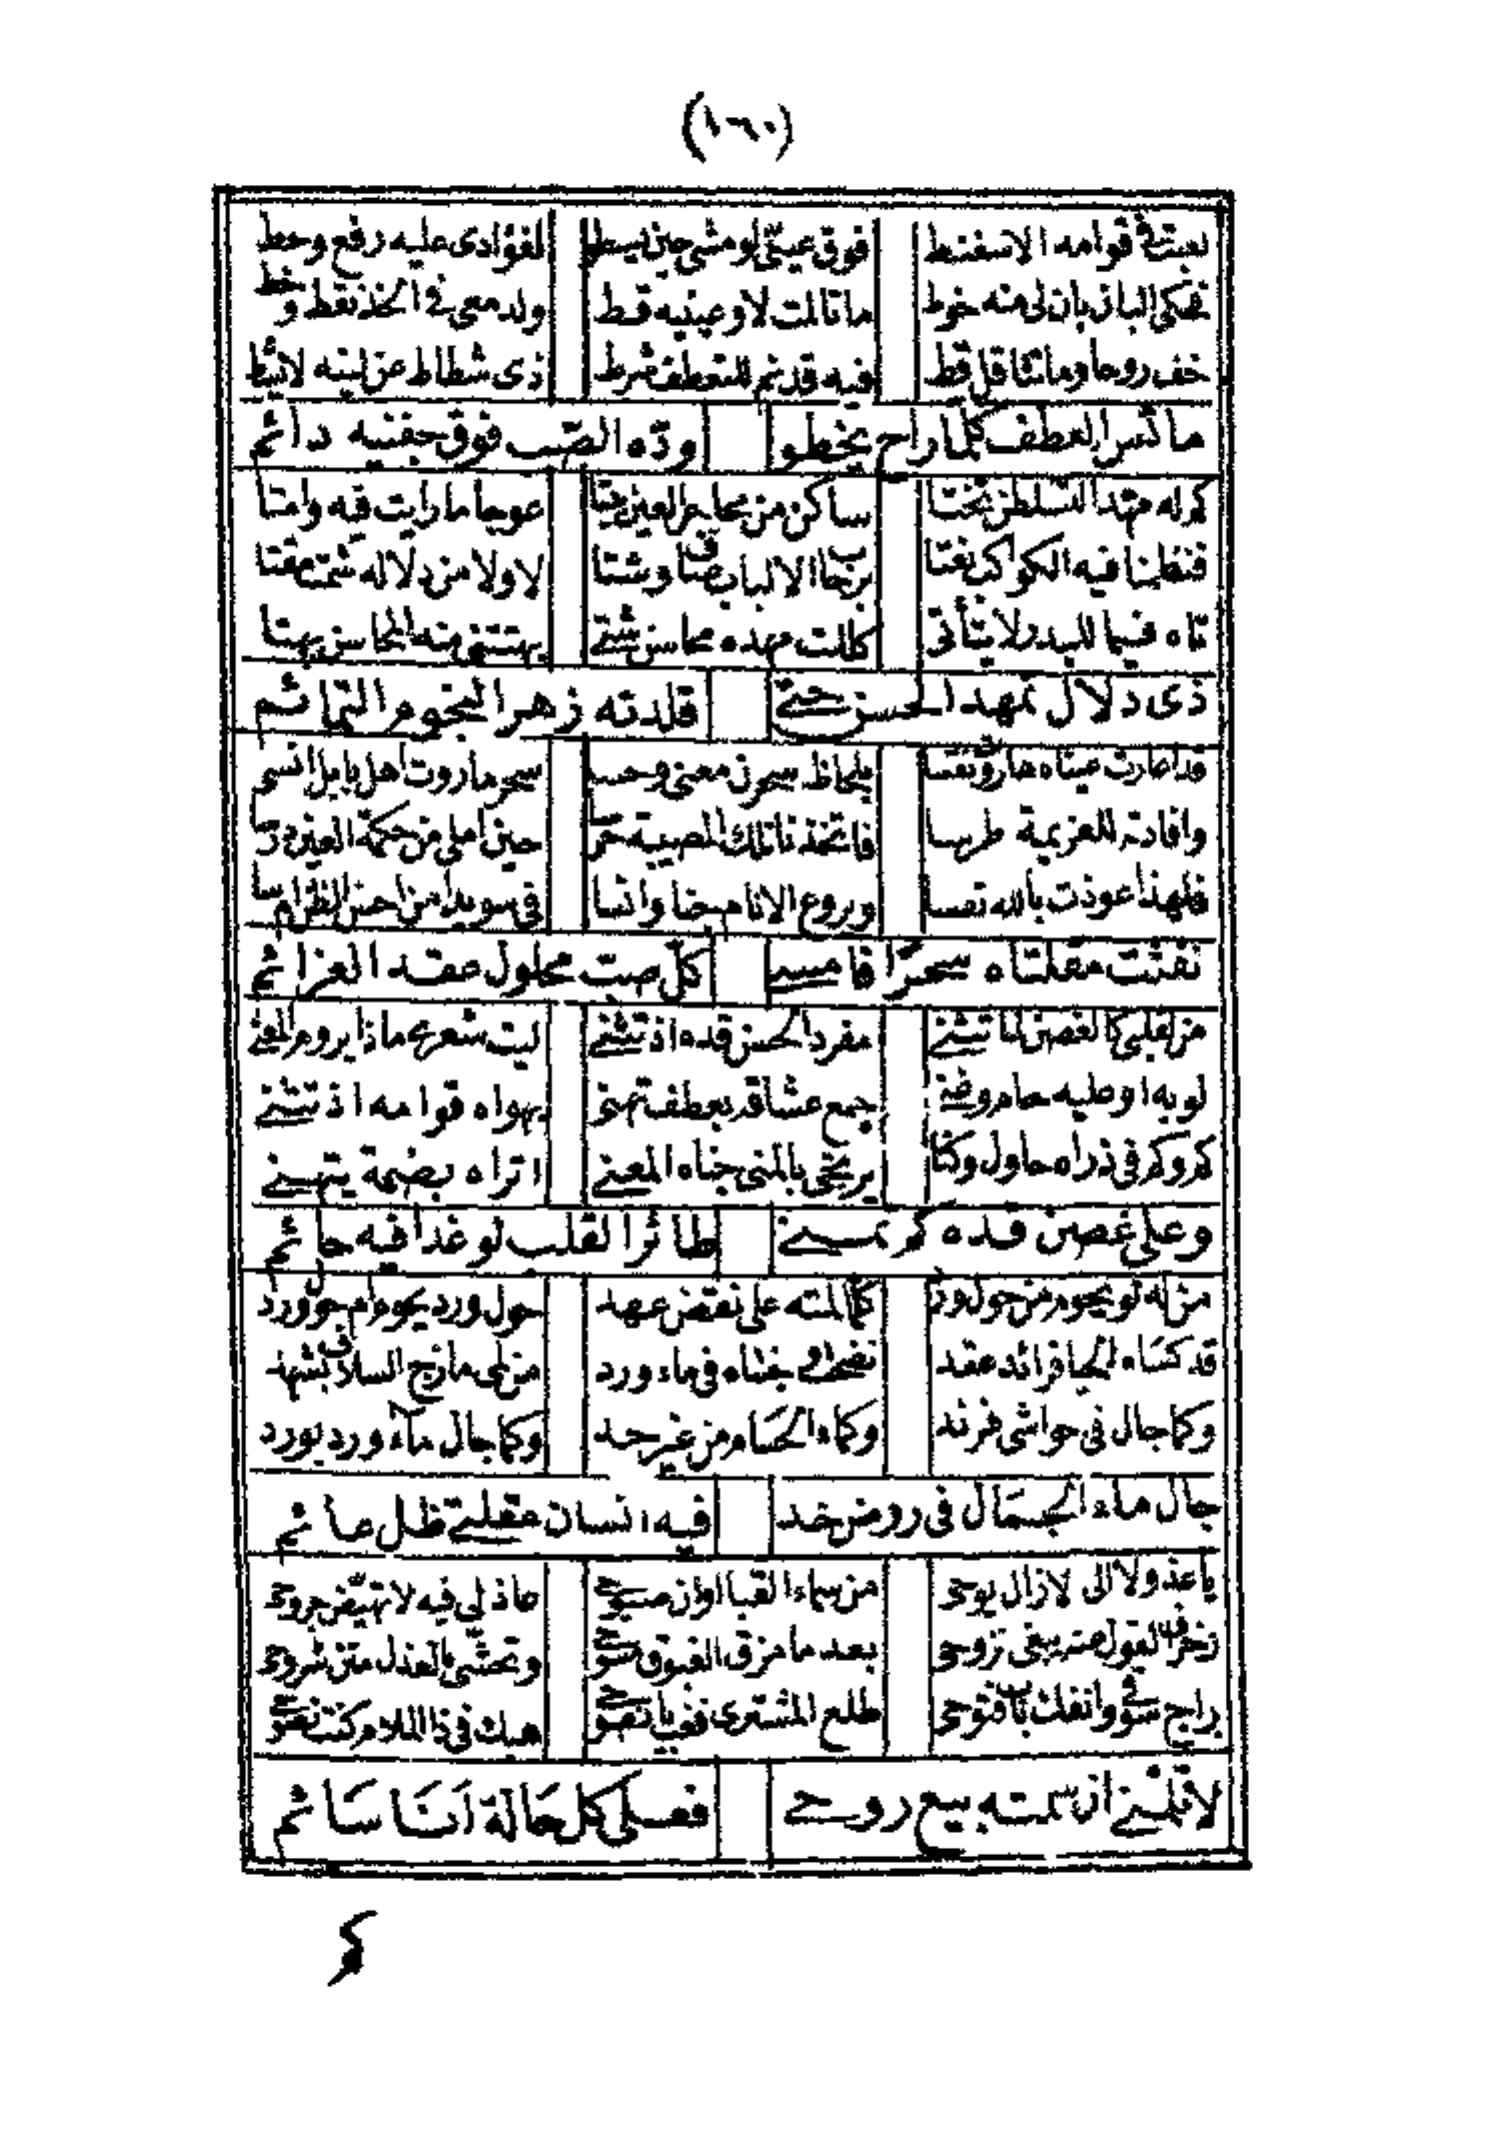 (١٦٠)
لعبت فى قوامه الاسفنط فوق عينى لو مشى حين يسطو لفؤادى عليه رفع وحط
البان بان لى منه خوط ما تالمت لا وعينيه قط ولدمعى فى الخد نقط وخط
خف روحا وما تثاقل قط فيه قد تم للتعطف شرط ذى شطاط عن لينه لا يشط
مائس العطف كلما راح يخطو ودّه الصّب فوق جفنيه دائم
كم له مهد التسلطن تختا ساكن من محاجر العين عوجا ما رايت فيه وامتا
فيه الكواكب الالباب وشتا لا ولا من دلاله شمت مقتا
تاه فيما للبدر لا يتأتى كللت مهده محاسن شتى منه المحاسن بهتا
ذى دلال بمهد الحسن حتى قلدته زهر النجوم التمائم
قد اعارت عيناه هاروت نفسا بلحاظ سحرن معنى وحسا سحر ماروت اهل بابل انسى
وافادته للعزيمة طرسا حين املى من حكمة العين درسا
فلهذا عوذت بالله نفسا ويروع الانام جنا وانسا فى سويدا من
نفثت مقلتاه سحرًا فامسى كلّ صب محلول عقد العزائم
من لقلبى كالغصن لما تثنى مفرد الحسن قده اذ تثنى ليت شعرى ماذا يروم المعنى
لو به او عليه حام وغنى جمع عشاقه بعطف تهنى بهواه قوامه اذ تثنى
كم وكم فى ذراه حاول وكنا يرتجى بالمنى جناه المعنى اتراه بضمة يتهنى
وعلى غصن قده كم تمنى طائر القلب لو غدا فيه حائم
من له لو يحوم من حول ورد كلما لمته على نقض عهد حول ورد يحوم ام حول ورد
قد كساه الحيا فرائد عقد فى ماء ورد من لمى مازج السلاف بشهد
وكما جال فى حواشى فرند وكماء الحسام من غير حد وكما جال مآء ورد بورد
جال ماء الجمال فى روض خد فيه انسان مقلتى ظل عائم
يا عذولا الى لا زال يوحى من سماء القبا اوان صبوحى عاذلى فيه لا تهيض جروحى
زخرف القول عنه يبغى نزوحى بعد ما مزق الغبوق مسوحى وتحشى بالعذل متن شروحى
طلع المشترى فقف يا نصوحى هبك فى ذا الملام كنت نصوحى
لا تلمنى ان سمته بيع روحى فعلى كل حالة اَنَا سَائم